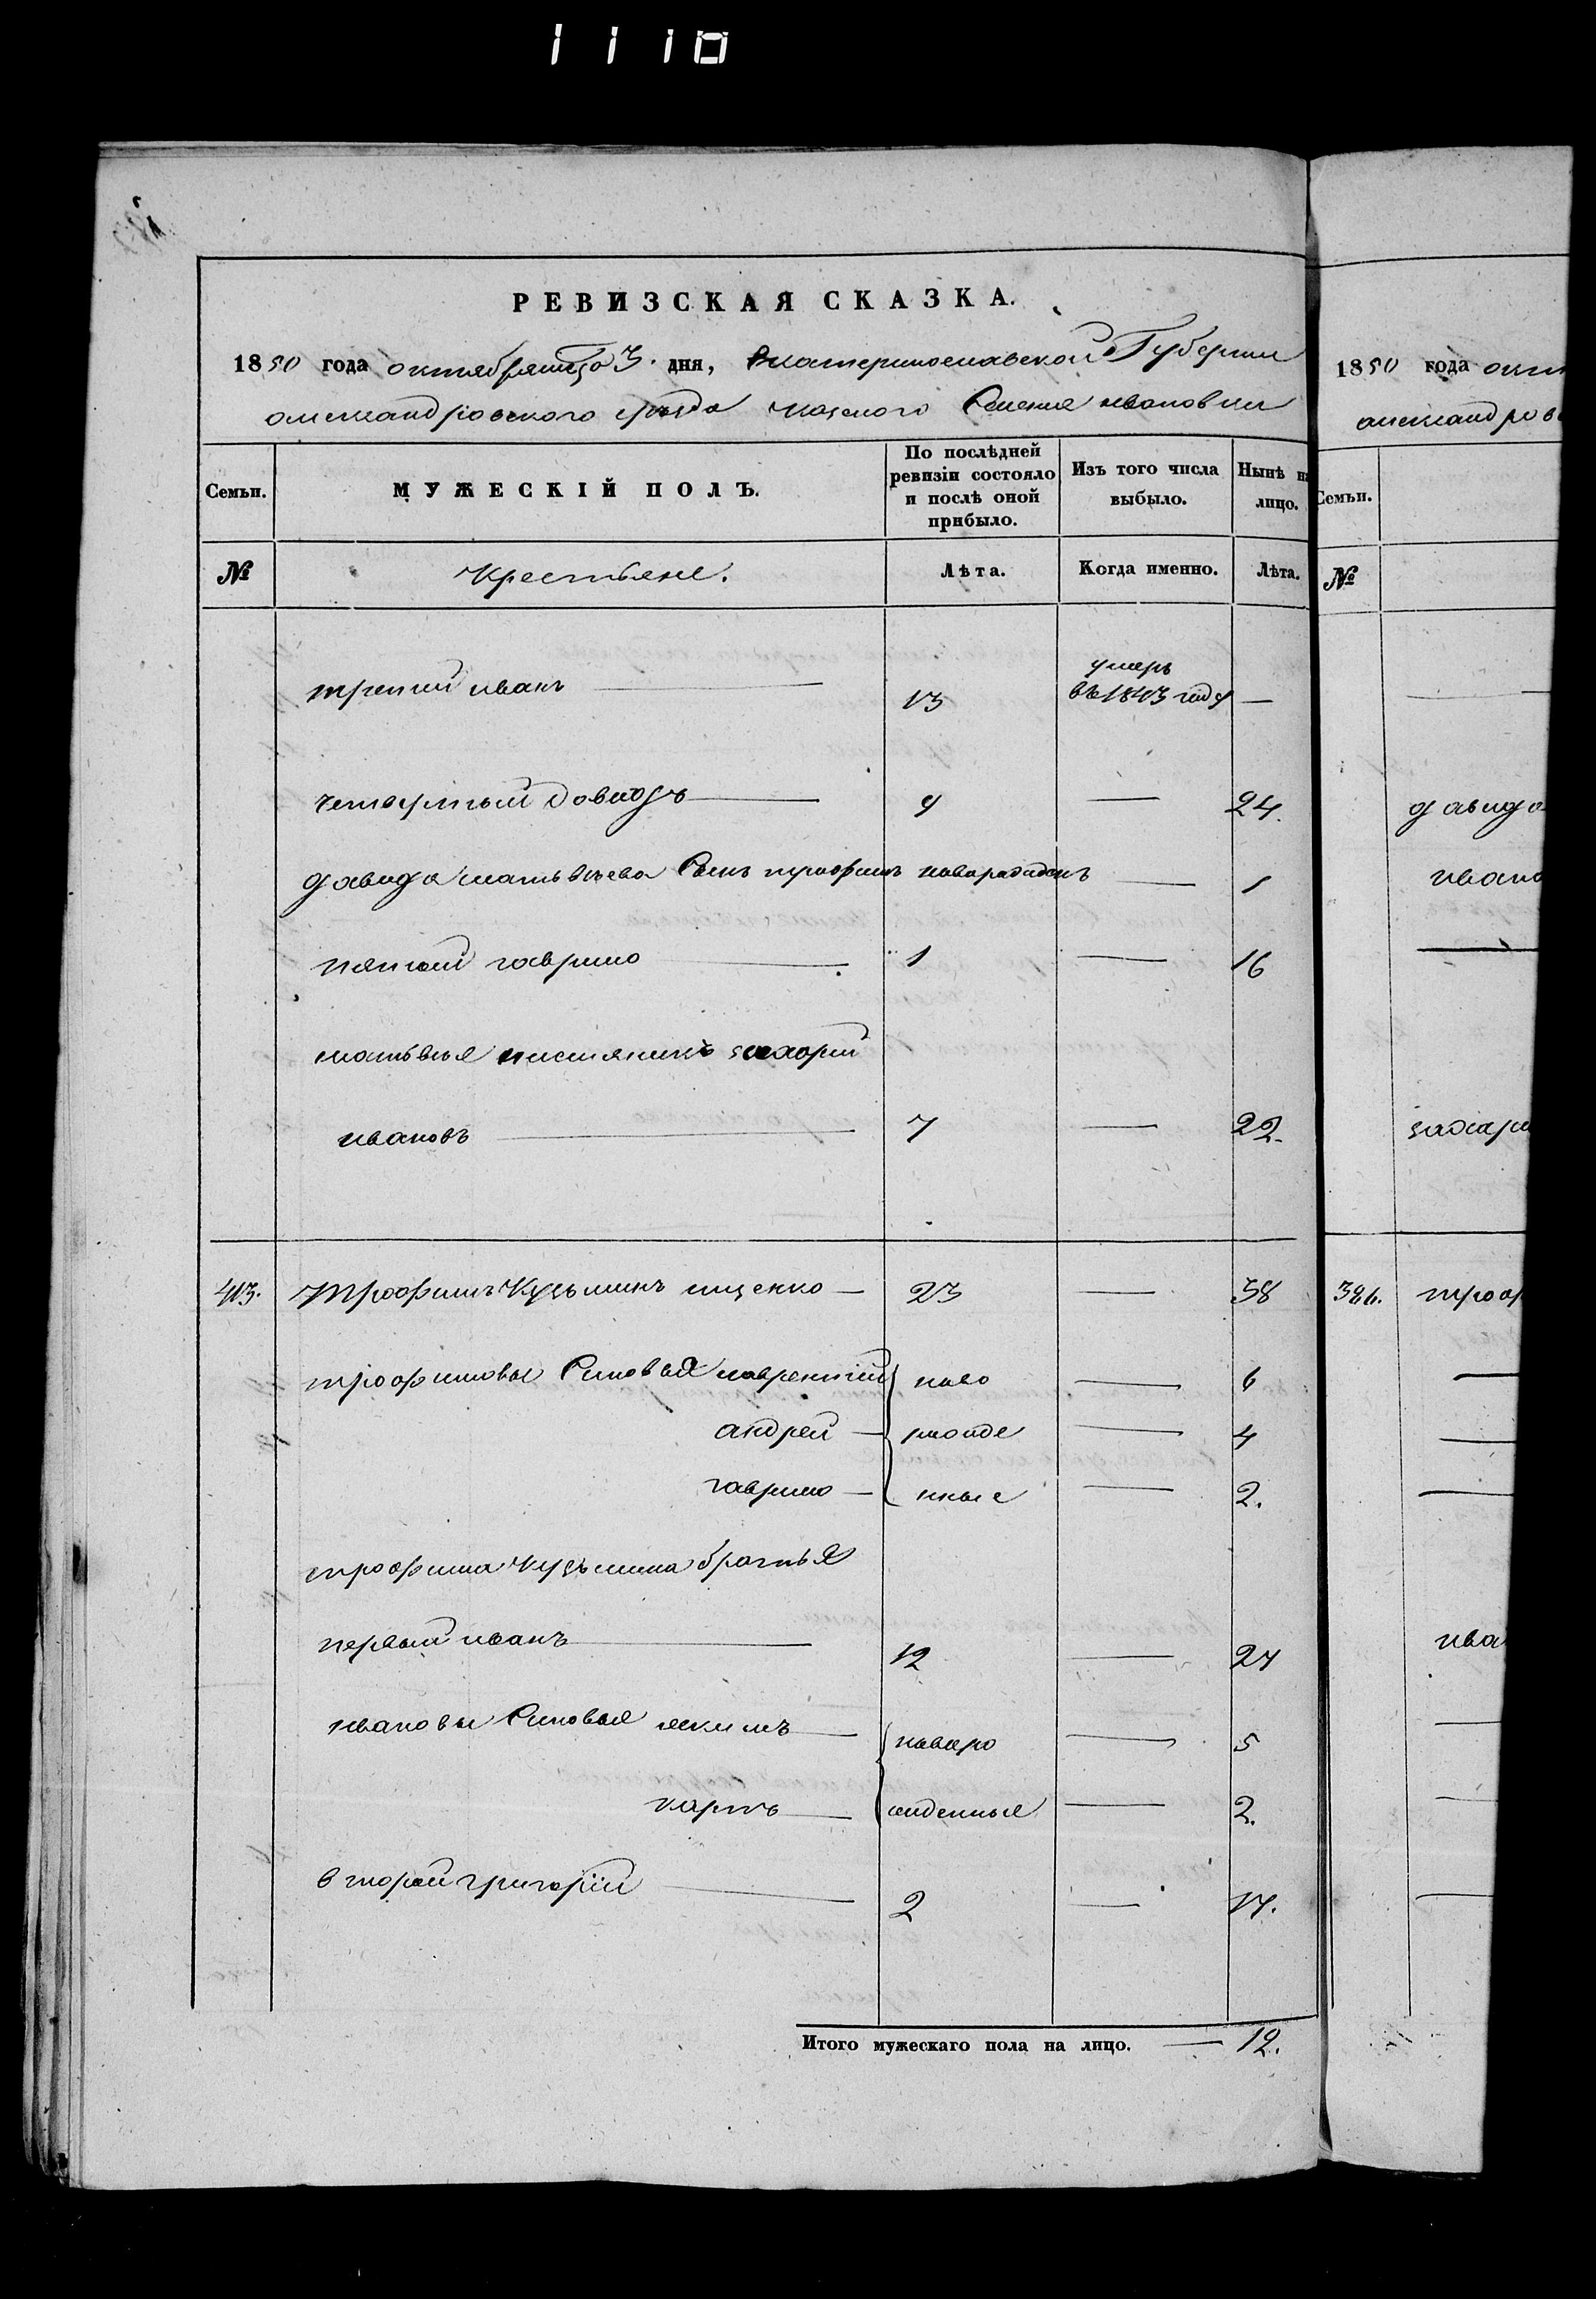 1110
РЕВИЗСКАЯ СКАЗКА.
1850 года октября месяца 3 дня, Екатеринославской Губернии
александровского уезда казеного Селения ивановки
Семьи.
МУЖЕСКІЙ ПОЛЪ.
По послѣдней ревизіи состояло и послѣ оной прибыло.
Изъ того числа выбыло.
Нынѣ на лицо.
№
Крестьяне.
Лѣта.
Когда именно.
Лѣта.
третий иванъ — 13 умеръ въ 1843 году —
четвертый давидъ — 9 — 24.
давида матвѣева Сынъ трофимъ новорожденъ — 1
пятый гаврило — 1 — 16
матвѣя племяникъ захарий
ивановъ — 7 — 22.
413. Трофимъ Кузьминъ ищенко — 23 — 38
трофимовы Сыновья лаврентий ново — 6
андрей — рожде — 4
гаврило — нные — 2.
трофима Кузьмина братья
первый иванъ — 12 — 27
ивановы Сыновья якимъ — новоро — 5
карпъ — жденные — 2.
второй григорій — 2 — 17.
Итого мужескаго пола на лицо. — 12.
1850 года
Семьи.
№
давида
захари
386.